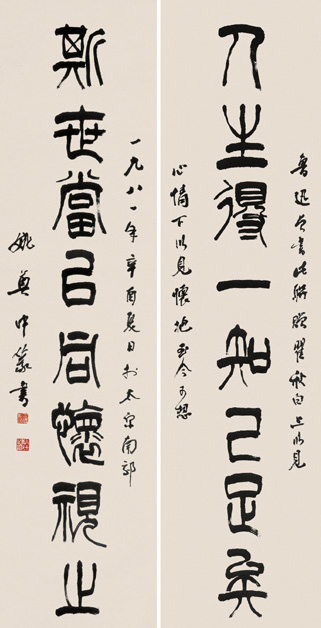 魯迅書此聯贈瞿秋白上以見
人生得一知己足矣
心情下以見懷抱至今可想
一九八一年辛酉夏日於太原南郊
斯世當以同懷視之
姚奠中篆書